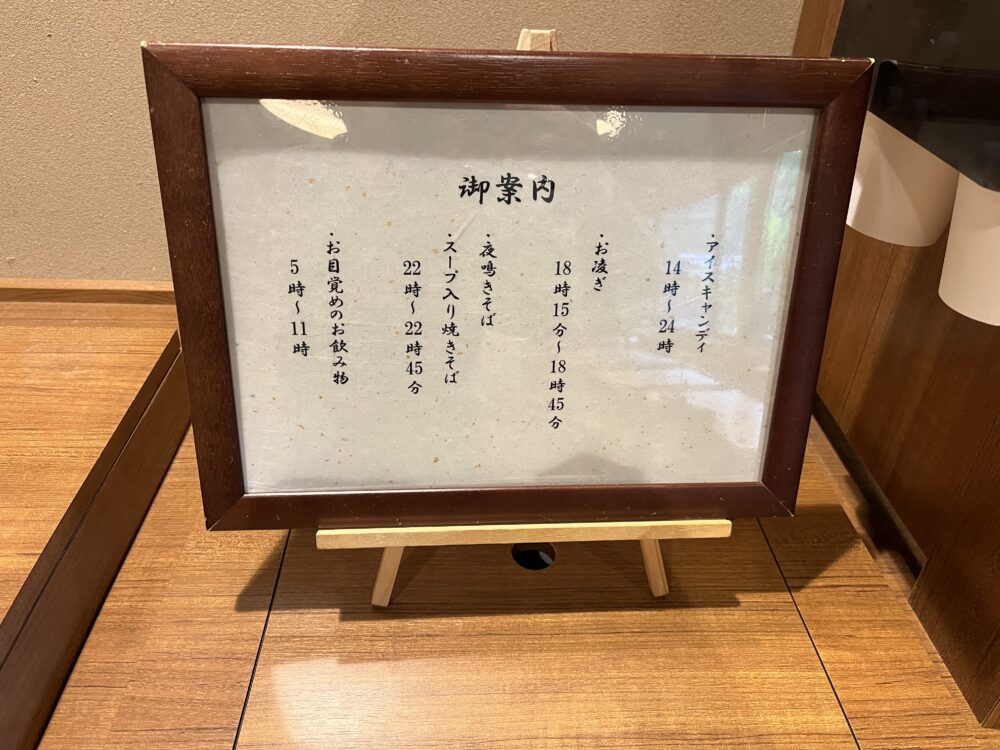 御案内
・アイスキャンディ
14時〜24時
・お凌ぎ
18時15分〜18時45分
・夜鳴きそば
・スープ入り焼きそば
22時〜22時45分
・お目覚めのお飲み物
5時〜11時